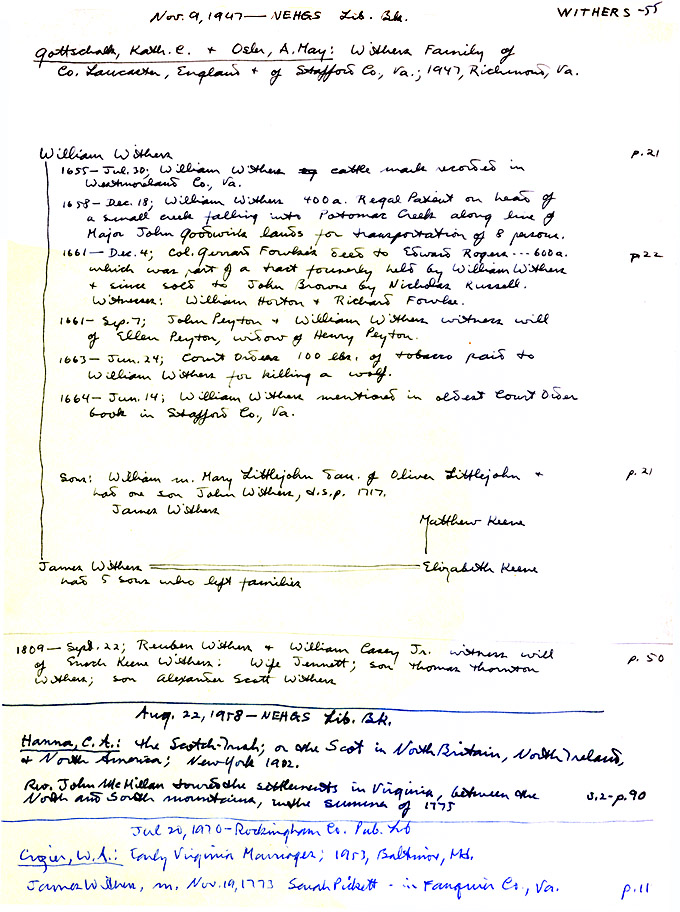 Nov. 9, 1947 — NEHGS Lib. Bk.
WITHERS -55
Gottschalk, Kath. C. & Osler, A. May: Withers Family of
Co. Lancaster, England & of Stafford Co., Va.; 1947, Richmond, Va.
William Withers p. 21
1655 — Jul. 30; William Withers cattle mark recorded in
Westmoreland Co., Va.
1658 — Dec. 18; William Withers 400 a. Regal Patent on head of
a small creek falling into Potomac Creek along line of
Major John Goodwins lands for transportation of 8 persons.
1661 — Dec. 4; Col. Gerrard Fowke's deed to Edward Rogers --- 600 a. p 22
which was part of a tract formerly held by William Withers
& since sold to John Browne by Nicholas Russell.
Witnesses: William Horton & Richard Fowke.
1661 — Sep. 7; John Peyton & William Withers witness will
of Ellen Peyton, widow of Henry Peyton.
1663 — Jun. 24; Court Orders 100 lbs. of tobacco paid to
William Withers for killing a wolf.
1664 — Jun. 14; William Withers mentioned in oldest Court Order
book in Stafford Co., Va.
Sons: William m. Mary Littlejohn dau. of Oliver Littlejohn & p. 21
had one son John Withers, d.s.p. 1717.
James Withers
Matthew Keene
James Withers Elizabeth Keene
had 5 sons who left families
1809 — Sept. 22; Reuben Withers & William Casey Jr. witness will
of Enoch Keene Withers: Wife Jennett; son Thomas Thornton p. 50
Withers; son Alexander Scott Withers
Aug. 22, 1958 — NEHGS Lib. Bk.
Hanna, C.A.: The Scotch-Irish; or the Scot in North Britain, North Ireland,
& North America; New York 1902.
Rev. John McMillan toured the settlements in Virginia, between the v.2-p.90
North and South mountains, in the summer of 1775
Jul 20, 1970 - Rockingham Co. Pub. Lib
Crozier, W.A.: Early Virginia Marriages; 1953, Baltimore, Md.
James Withers, m. Nov. 19, 1773 Sarah Pickett - in Fauquier Co., Va. p. 11